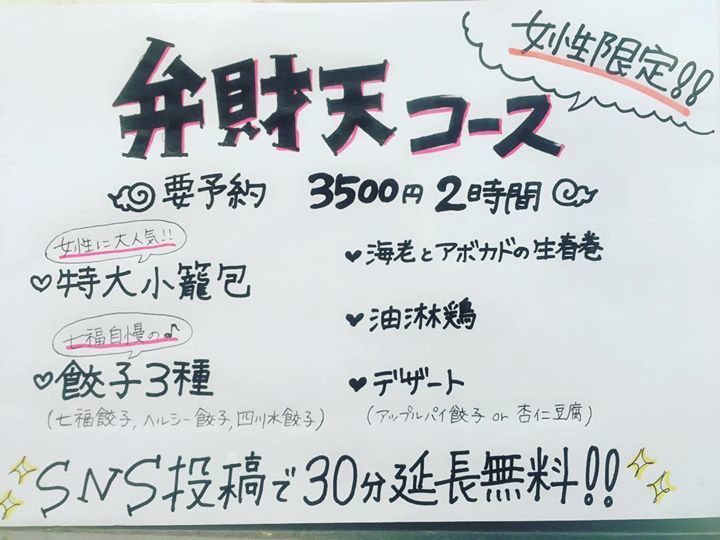 女性限定!!
弁財天コース
要予約 3500円 2時間
女性に大人気!!
♡特大小籠包
七福自慢の♪
♡餃子3種
(七福餃子, ヘルシー餃子, 四川水餃子)
♥海老とアボカドの生春巻
♥油淋鶏
♥デザート
(アップルパイ餃子 or 杏仁豆腐)
SNS投稿で30分延長無料!!